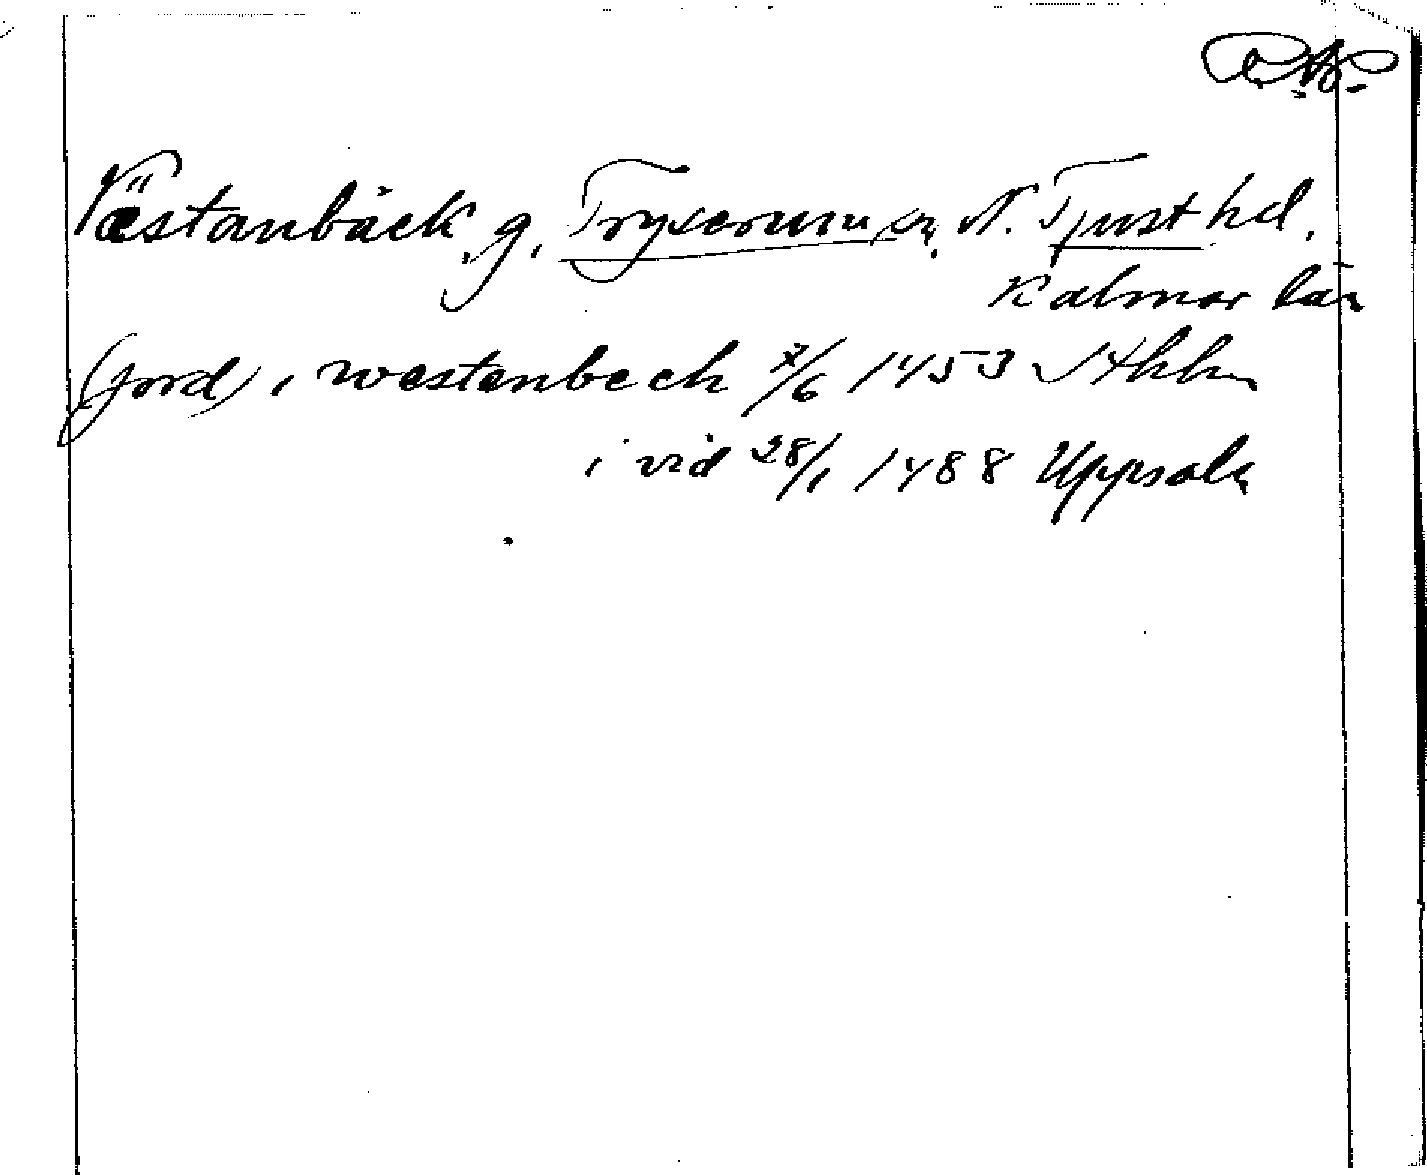 R.A.
Västanbäck, g. Tryserums sn, N. Tjust hd.
Kalmar län
(jord) i westenbech 7/6 1453 Sthlm
i vid 28/1 1488 Uppsala